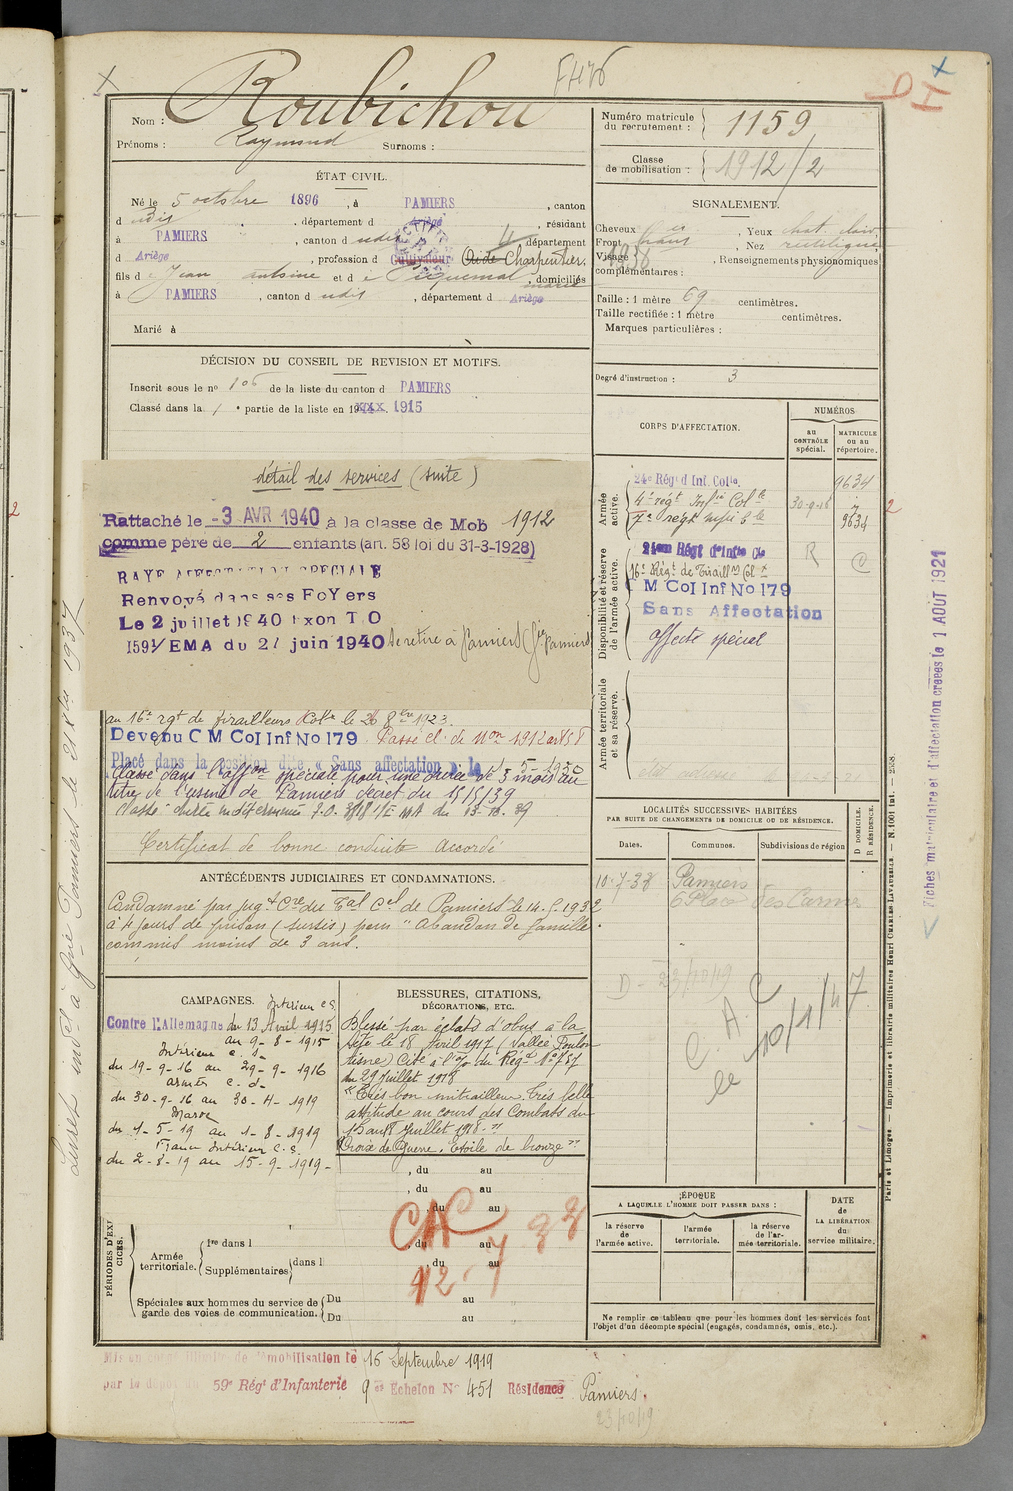 Roubichou
F476
Nom :
Prénoms : Raymond Surnoms :
Numéro matricule du recrutement : 1159
Classe de mobilisation : 1912/2
ÉTAT CIVIL.
Né le 5 octobre 1896, à PAMIERS, canton
d udit, département d Ariège, résidant
à PAMIERS, canton d udit, département
d Ariège, profession d Cultivateur Charpentier.
fils d e Jean Antoine et d e Piquemal, domiciliés
à PAMIERS, canton d udit, département d Ariège
Marié à
SIGNALEMENT.
Cheveux, Yeux chat. clair
Front, Nez rectiligne
Visage, Renseignements physionomiques
complémentaires :
Taille : 1 mètre 69 centimètres.
Taille rectifiée : 1 mètre centimètres.
Marques particulières :
Degré d'instruction : 3
DÉCISION DU CONSEIL DE REVISION ET MOTIFS.
Inscrit sous le no 106 de la liste du canton d PAMIERS
Classé dans la 1 e partie de la liste en 19 1915
détail des services (suite)
Rattaché le -3 AVR 1940 à la classe de Mob 1912
comme père de 2 enfants (art. 58 loi du 31-3-1928)
RAYE AFFECTATION SPECIALE
Renvoyé dans ses Foyers
Le 2 juillet 1940 T.O
1591/EMA du 27 juin 1940 Se retire à Pamiers
au 16e rgt de tirailleurs Colx le 26 8bre 1923.
Devenu C M Col Inf No 179 Passé cl. de Mon 1912 art 58
Placé dans la position dite « Sans affectation » le 1-5-1930
Classé dans l'affon spéciale pour une durée de 3 mois au
titre de l'usine de Pamiers décret du 15/5/39
durée indéterminée I.O. EMA du
Certificat de bonne conduite accordé
CORPS D'AFFECTATION.
NUMÉROS
au contrôle spécial.
matricule ou au répertoire.
Armée active.
24e Régt d Inf. Colle. 9634
4e régt Infie Colle 30-9-16
7e regt infie Cle 9634
Disponibilité et réserve de l'armée active.
24em Régt d'infie Cle R
16e Régt de Tiraillrs Colx
C M Col Inf No 179
Sans Affectation
Affecté spécial
Armée territoriale et sa réserve.
LOCALITÉS SUCCESSIVES HABITÉES
PAR SUITE DE CHANGEMENTS DE DOMICILE OU DE RÉSIDENCE.
Dates. Communes. Subdivisions de région
D DOMICILE. R RÉSIDENCE.
10-7-38 Pamiers
6 Place des Carmes
D - 23/10/19
C. A. C
le 10/1/47
ANTÉCÉDENTS JUDICIAIRES ET CONDAMNATIONS.
Condamné par jugt Cre du Tal Cel de Pamiers le 14. 1932
à 4 jours de prison (sursis) pour "Abandon de famille
commis moins de 3 ans.
CAMPAGNES.
Intérieur c.s.
Contre l'Allemagne du 13 Avril 1915
au 9-8-1915
Intérieur c. s.
du 19-9-16 au 29-9-1916
armées c. d.
du 30-9-16 au 30-4-1919
Maroc
du 1-5-19 au 1-8-1919
France Intérieur c. s.
du 2-8-19 au 15-9-1919-
BLESSURES, CITATIONS,
DÉCORATIONS, ETC.
Blessé par éclats d'obus à la
tête le 18 Avril 1917 (Vallée Foulon
Aisne) Cité à l'o/ du Régt No 757
du 29 Juillet 1918
"Très bon mitrailleur. Très belle
attitude au cours des Combats du
15 au 18 Juillet 1918."
Croix de Guerre. Etoile de bronze"
, du au
, du au
, du au
, du au
, du au
CAC
12-7 38
PÉRIODES D'EXERCICES.
Armée territoriale. 1re dans l
Supplémentaires dans l
Spéciales aux hommes du service de garde des voies de communication. Du au
Du au
ÉPOQUE
A LAQUELLE L'HOMME DOIT PASSER DANS :
la réserve de l'armée active.
l'armée territoriale.
la réserve de l'armée territoriale.
DATE de LA LIBÉRATION du service militaire.
Ne remplir ce tableau que pour les hommes dont les services font
l'objet d'un décompte spécial (engagés, condamnés, omis, etc.).
Mis en congé illimité de démobilisation le 16 Septembre 1919
par le dépôt du 59e Régt d'Infanterie 9e Echelon No 451 Résidence Pamiers.
23/10/19
Fiches matriculaire et d'affectation créées le 1 AOUT 1921
Paris et Limoges. — Imprimerie et librairie militaires Henri CHARLES-LAVAUZELLE. — N. 1001 Int.